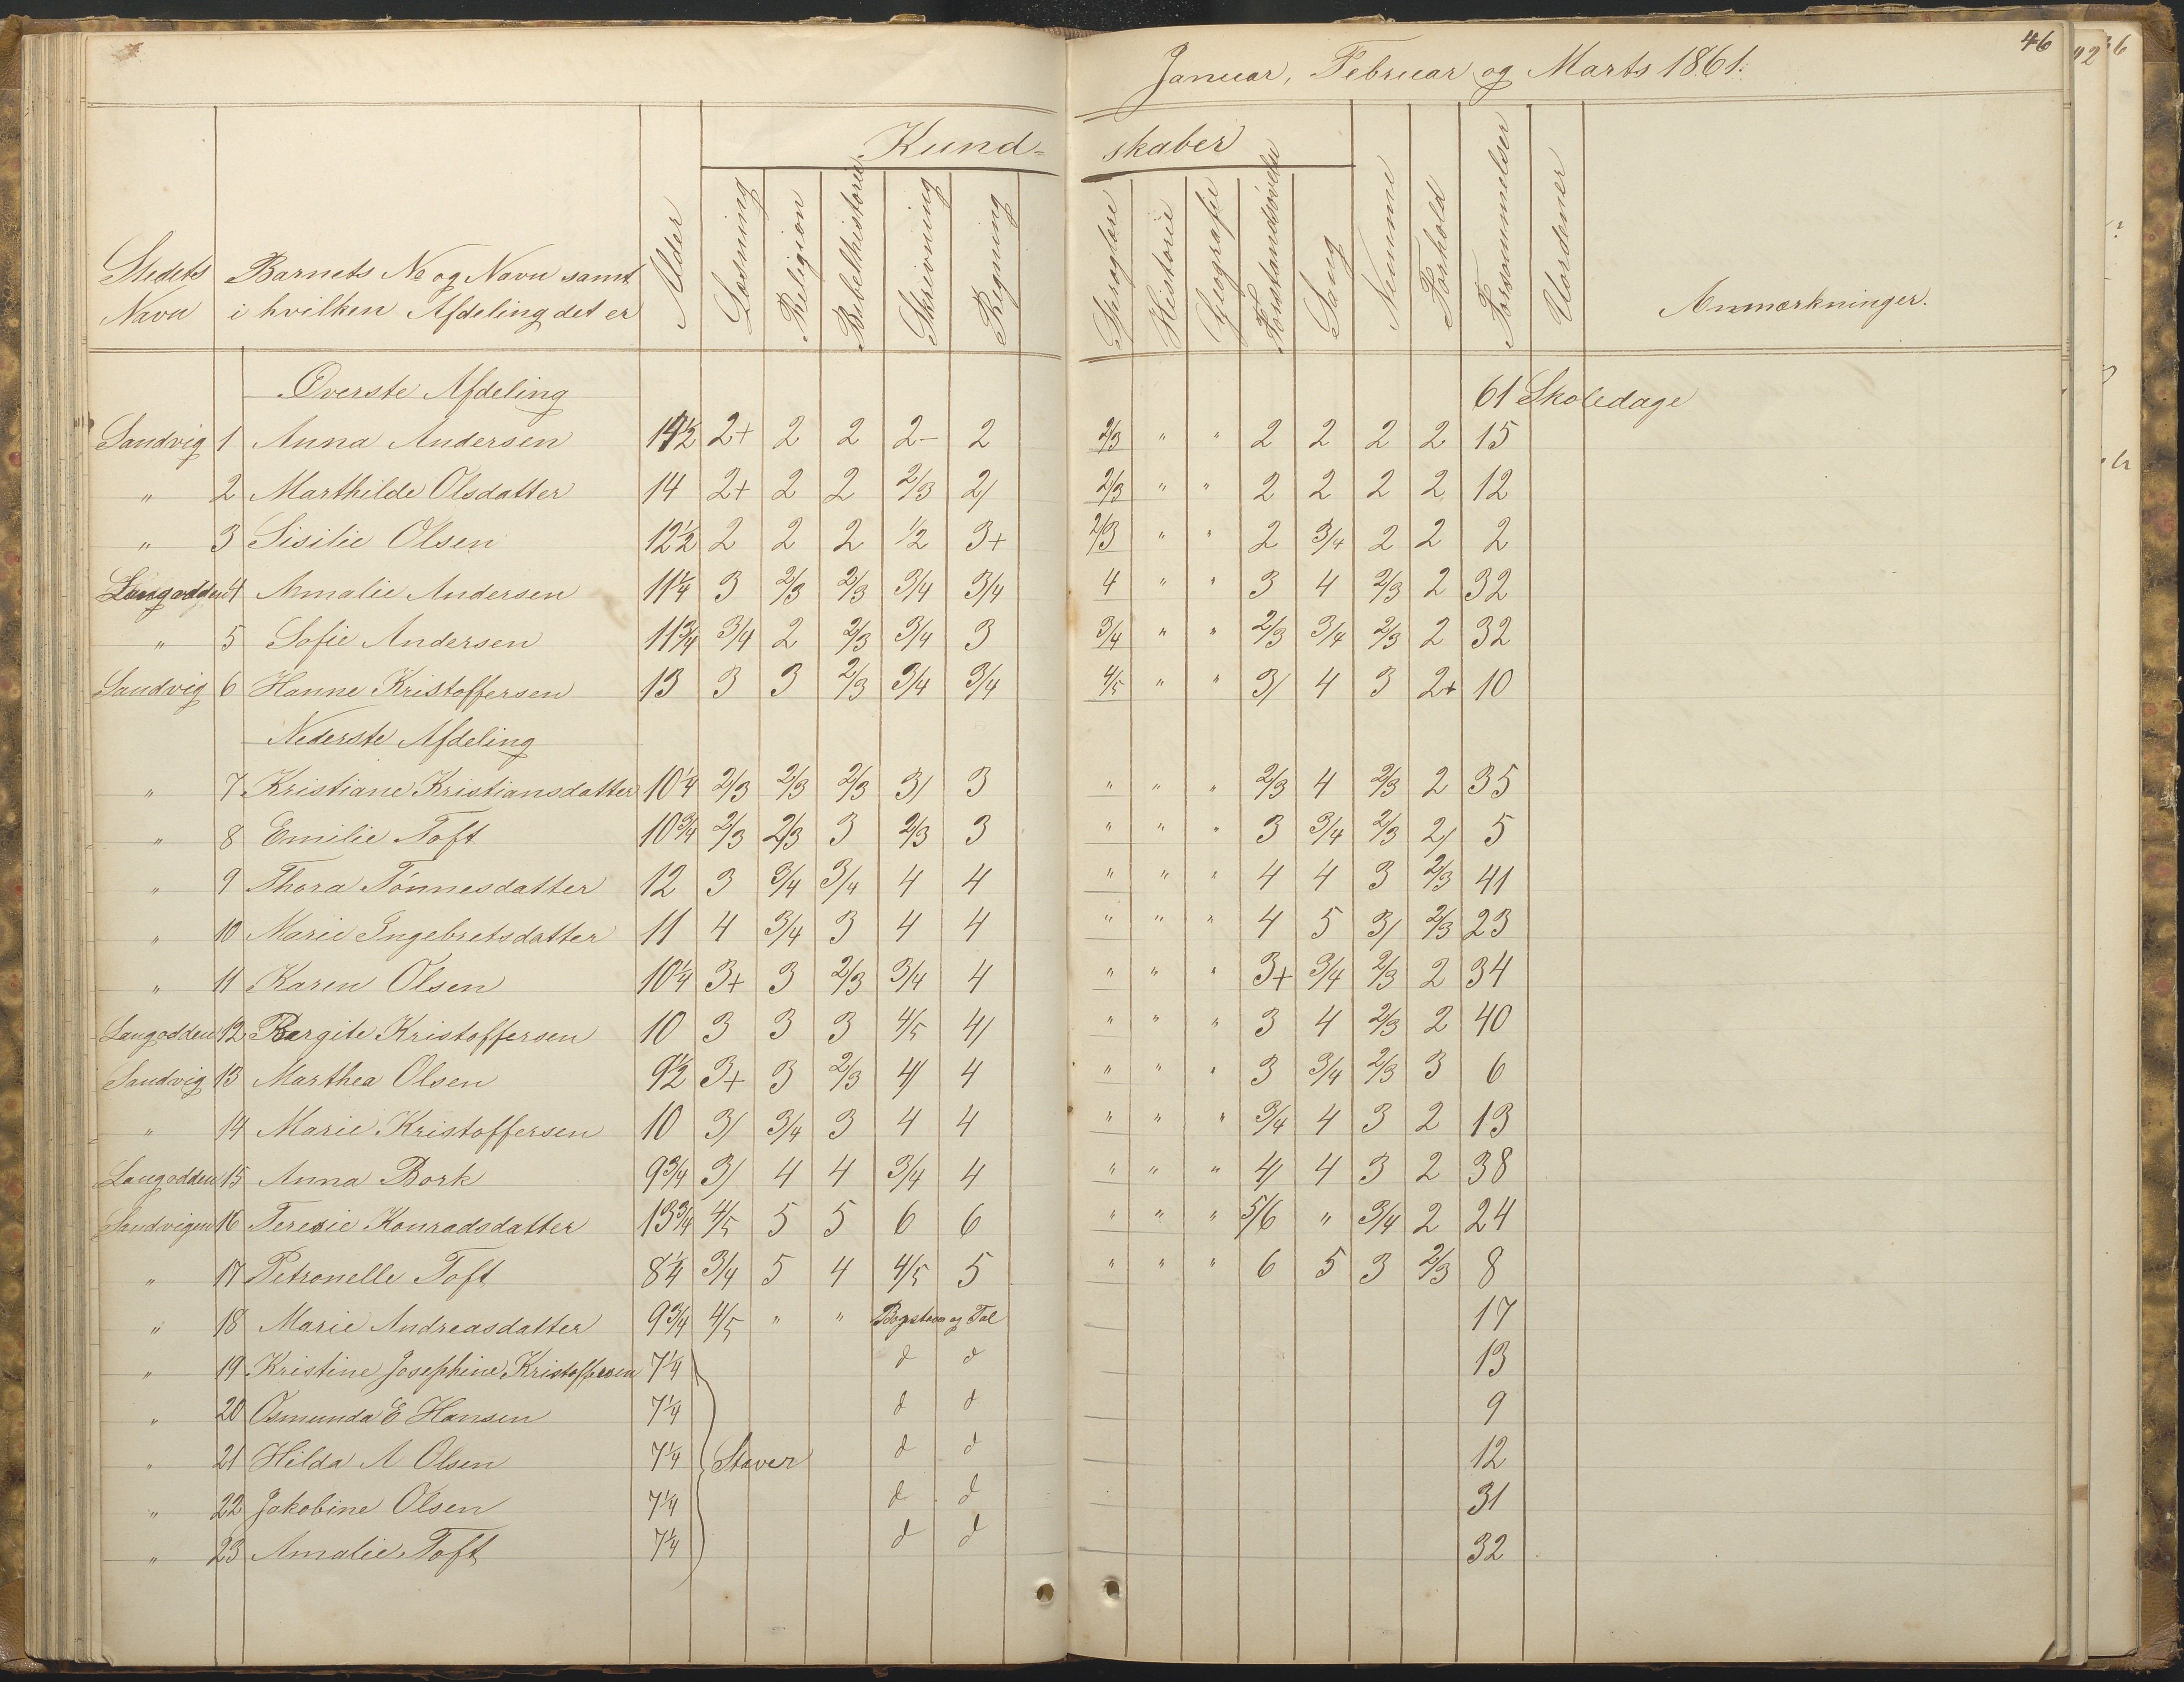 Januar, Februar og Marts 1861.
46
Kund- skaber
Stedets Navn
Barnets No og Navn samt i hvilken Afdeling det er
Alder
Læsning
Religion
Bibelhistorie
Skrivning
Regning
Sproglære
Historie
Geografi
Forstandsøvelse
Sang
Nemme
Forhold
Forsømmelser
Uordener
Anmærkninger.
Øverste Afdeling 61 Skoledage
Sandvig 1 Anna Andersen 14½ 2+ 2 2 2- 2 2/3 " " 2 2 2 2 15
" 2 Marthilde Olsdatter 14 2+ 2 2 2/3 2/ 2/3 " " 2 2 2 2 12
" 3 Sisilie Olsen 12½ 2 2 2 1/2 3+ 2/3 " " 2 3/4 2 2 2
Langodden 4 Amalie Andersen 11¼ 3 2/3 2/3 3/4 3/4 4 " " 3 4 2/3 2 32
" 5 Sofie Andersen 11¾ 3/4 2 2/3 3/4 3 3/4 " " 2/3 3/4 2/3 2 32
Sandvig 6 Hanne Kristoffersen 13 3 3 2/3 3/4 3/4 4/5 " " 3/ 4 3 2+ 10
Nederste Afdeling
" 7 Kristiane Kristiansdatter 10¼ 2/3 2/3 2/3 3/ 3 " " " 2/3 4 2/3 2 35
" 8 Emilie Toft 10¾ 2/3 2/3 3 2/3 3 " " " 3 3/4 2/3 2/ 5
" 9 Thora Tönnesdatter 12 3 3/4 3/4 4 4 " " " 4 4 3 2/3 41
" 10 Marie Ingebretsdatter 11 4 3/4 3 4 4 " " " 4 5 3/ 2/3 23
" 11 Karen Olsen 10¼ 3+ 3 2/3 3/4 4 " " " 3+ 3/4 2/3 2 34
Langodden 12 Bergite Kristoffersen 10 3 3 3 4/5 4/ " " " 3 4 2/3 2 40
Sandvig 13 Marthea Olsen 9½ 3+ 3 2/3 4/ 4 " " " 3 3/4 2/3 3 6
" 14 Marie Kristoffersen 10 3/ 3/4 3 4 4 " " " 3/4 4 3 2 13
Langodden 15 Anna Bork 9¾ 3/ 4 4 3/4 4 " " " 4/ 4 3 2 38
Sandvigen 16 Teresie Konradsdatter 13¾ 4/5 5 5 6 6 " " " 5/6 " 3/4 2 24
" 17 Petronelle Toft 8¼ 3/4 5 4 4/5 5 " " " 6 5 3 2/3 8
" 18 Marie Andreasdatter 9¾ 4/5 " " Bogstaver og Tal 17
" 19 Kristine Josephine Kristoffersen 7¼ d d 13
" 20 Osmunda E Hansen 7¼ d d 9
" 21 Hilda A Olsen 7¼ Staver d d 12
" 22 Jakobine Olsen 7¼ d d 31
" 23 Amalie Toft 7¼ d d 32